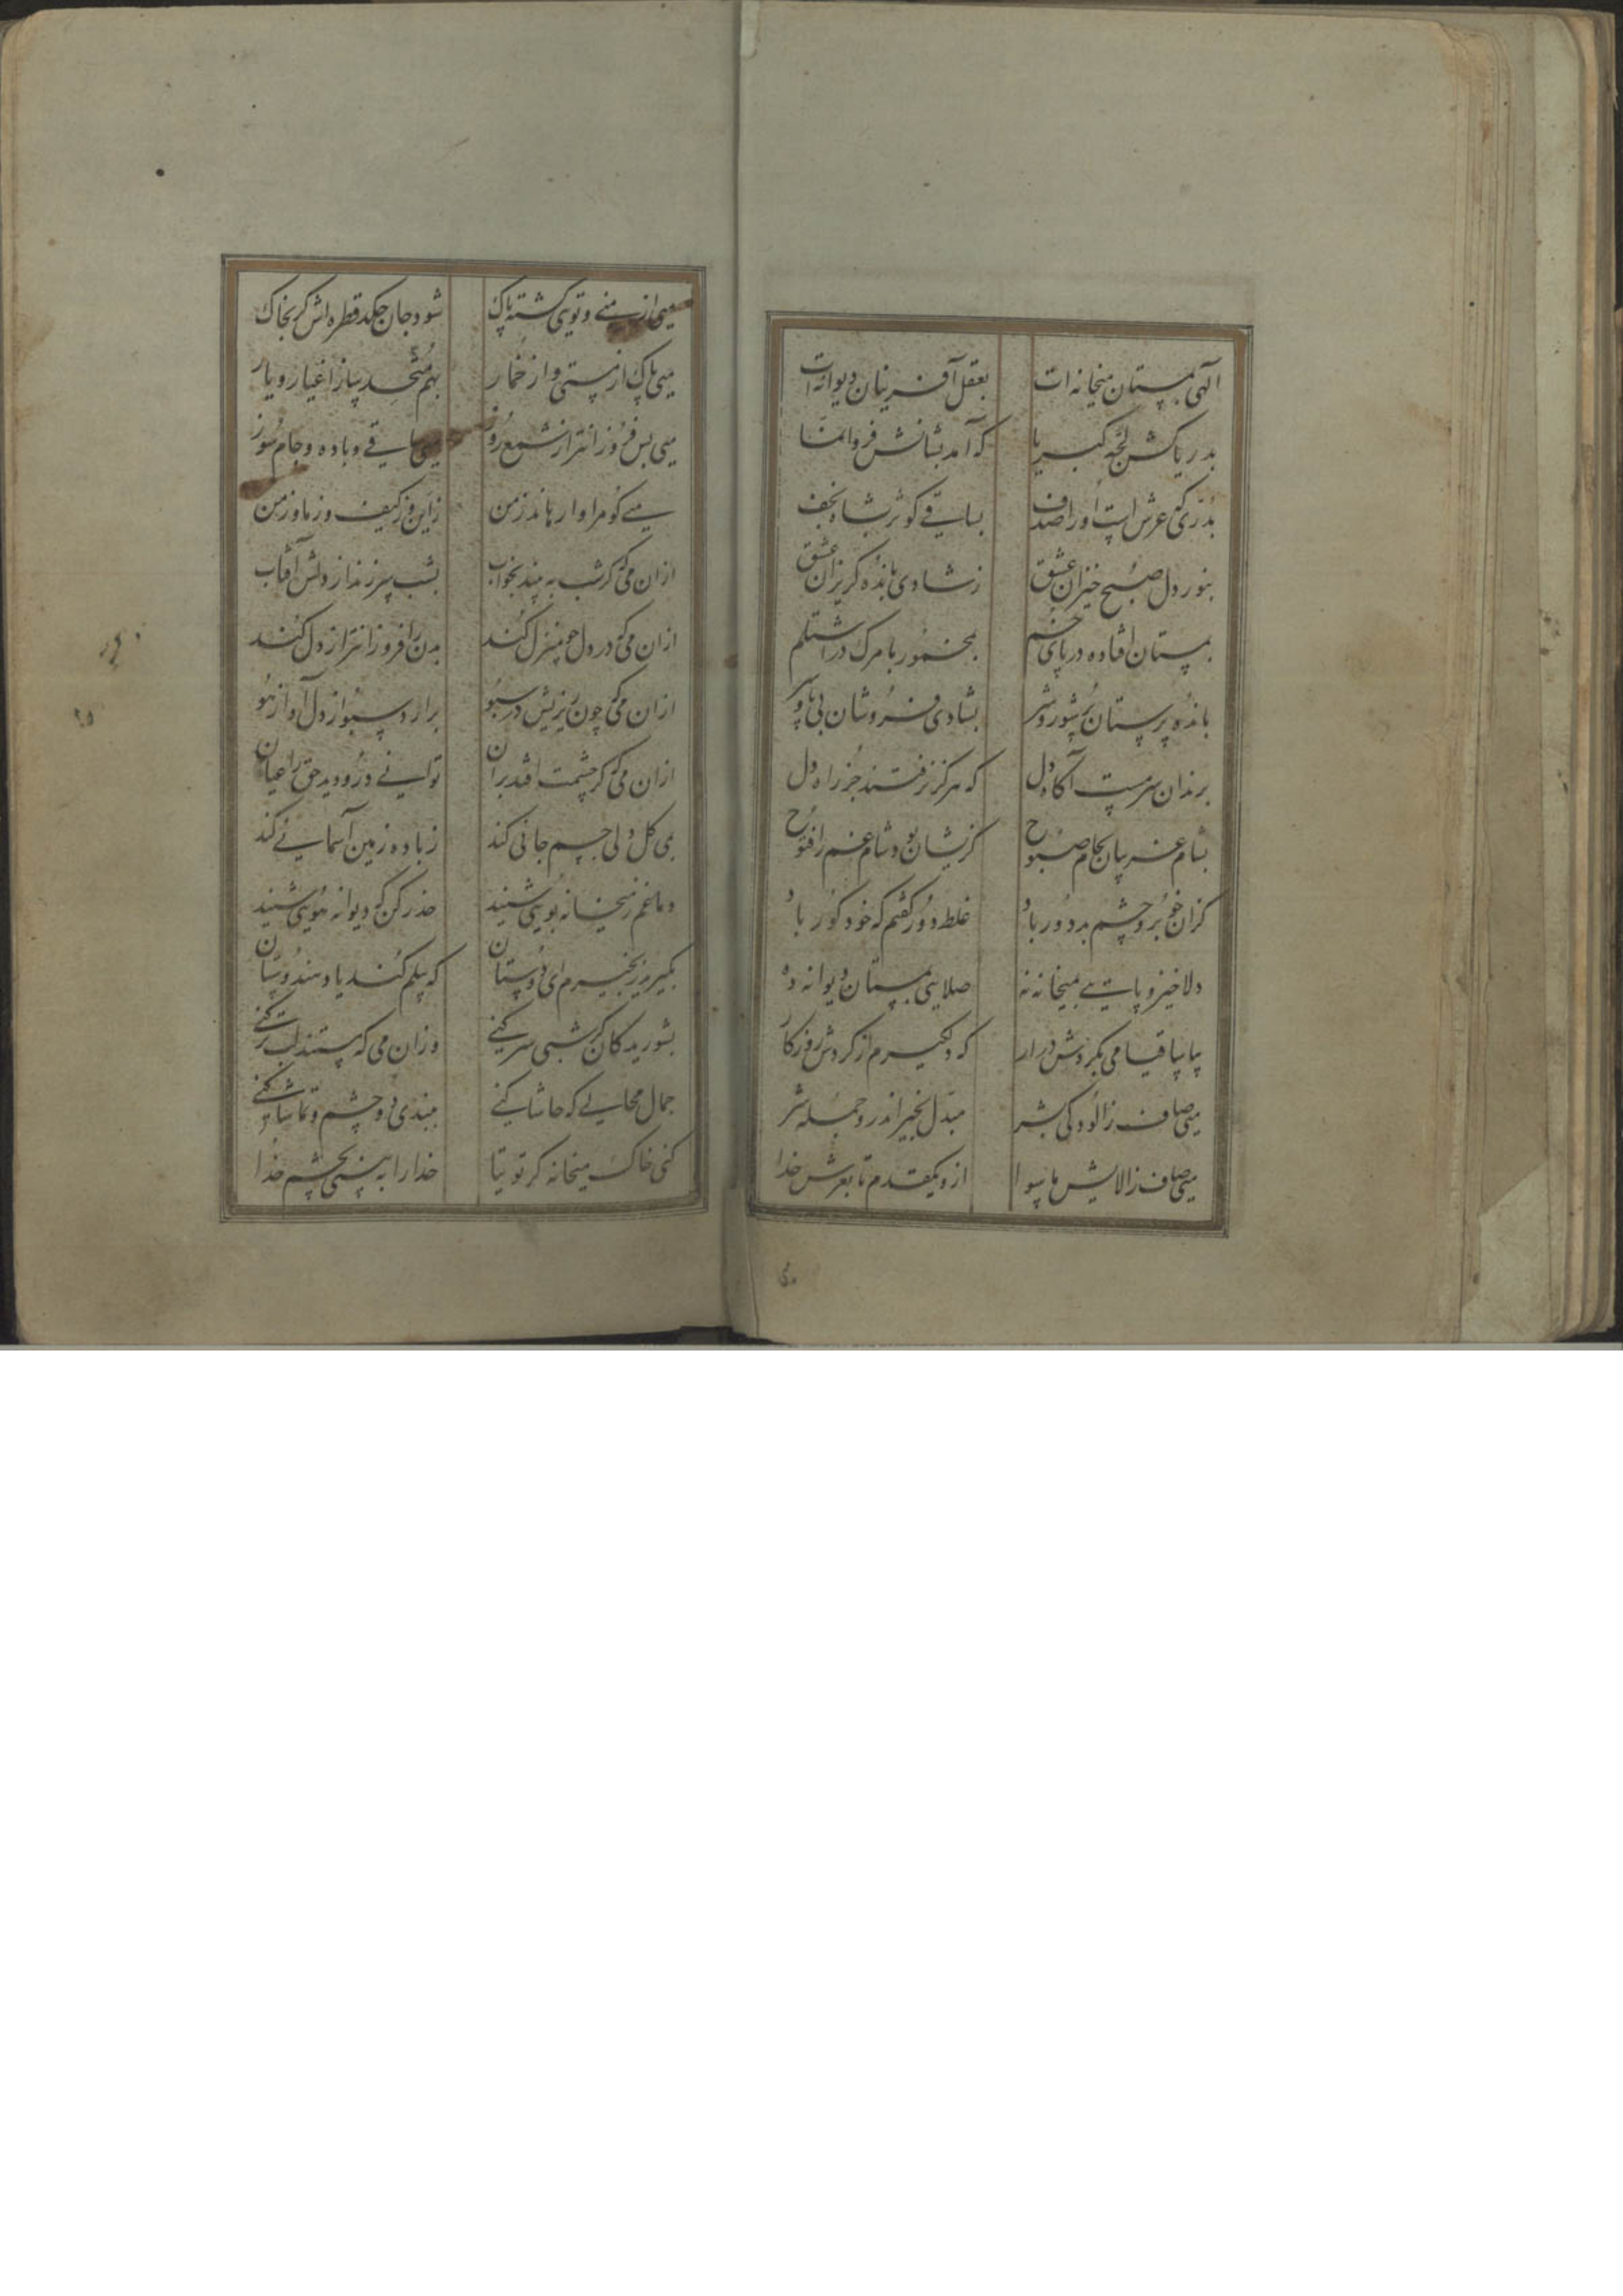 الهی بمستان میخانه ات    بعقل آفرینان دیوانه ات
بدریاکش لجه کبریا    که آمد بشانش فرو انما
بدری که عرش است اورا صدف    بساقی کوثر شاه نجف
بنور دل صبح خیزان عشق    زشادی باندُه کریزان عشق
بمستان افتاده در پای خم    بمخمور با مرک در اشتلم
باندُه پرستان پُر شور و شر    بشادی فروشان بی پا و سر
برندان سرمست آکاه دل    که هرکز نرفتند جز راه دل
بشام غریبان بجام صبوح    کزیشان بود شام غم را فتوح
کزان خوبرو چشم بد دور باد    غلط دور کفتم که خود کور باد
دلا خیز و پائی بمیخانه نه    صلایی بمستان دیوانه ده
بیا ساقیا می بکردش درار    که دلکیرم از کردش روزکار
میی صاف زالودکی بشر    مبدل بخیر اندرو جمله شر
میی صاف زالایش ماسوا    ازو یکقدم تا بعرش خدا
میی از منی و تویی کشته پاک    شود جان چکد قطره اش کر بخاک
میی پاک از مستی و از خمار    بهم متحد ساز اغیار و یار
میی بس فروزانتر از شمع روز    می و ساقی و باده و جام سوز
میی کو مرا وا رهاند زمن    زاین و زکیف و زما و زمن
ازان می که کر شب به بیند بخواب    بشب سر زند از دلش آفتاب
ازان می که در دل چو منزل کند    بدن را فروزانتر از دل کند
ازان می که چون ریزیش در سبو    برارد سبو از دل آواز هو
ازان می که کر چشمت افتد بران    توانی درو دید حق را عیان
بی کل ولی جسم جانی کند    زباده زمین آسمانی کند
دماغم زمیخانه بویی شنید    حذر کن که دیوانه هویی شنید
بکیرید زنجیرم ای دوستان    که پیلم کند یاد هندوستان
بشوریدکان کر شبی سر کنی    وزان می که مستند لب تر کنی
جمال محالی که حاشا کنی    ببندی دو چشم و تماشا کنی
کنی خاک میخانه کر توتیا    خدا را به بینی بچشم خدا